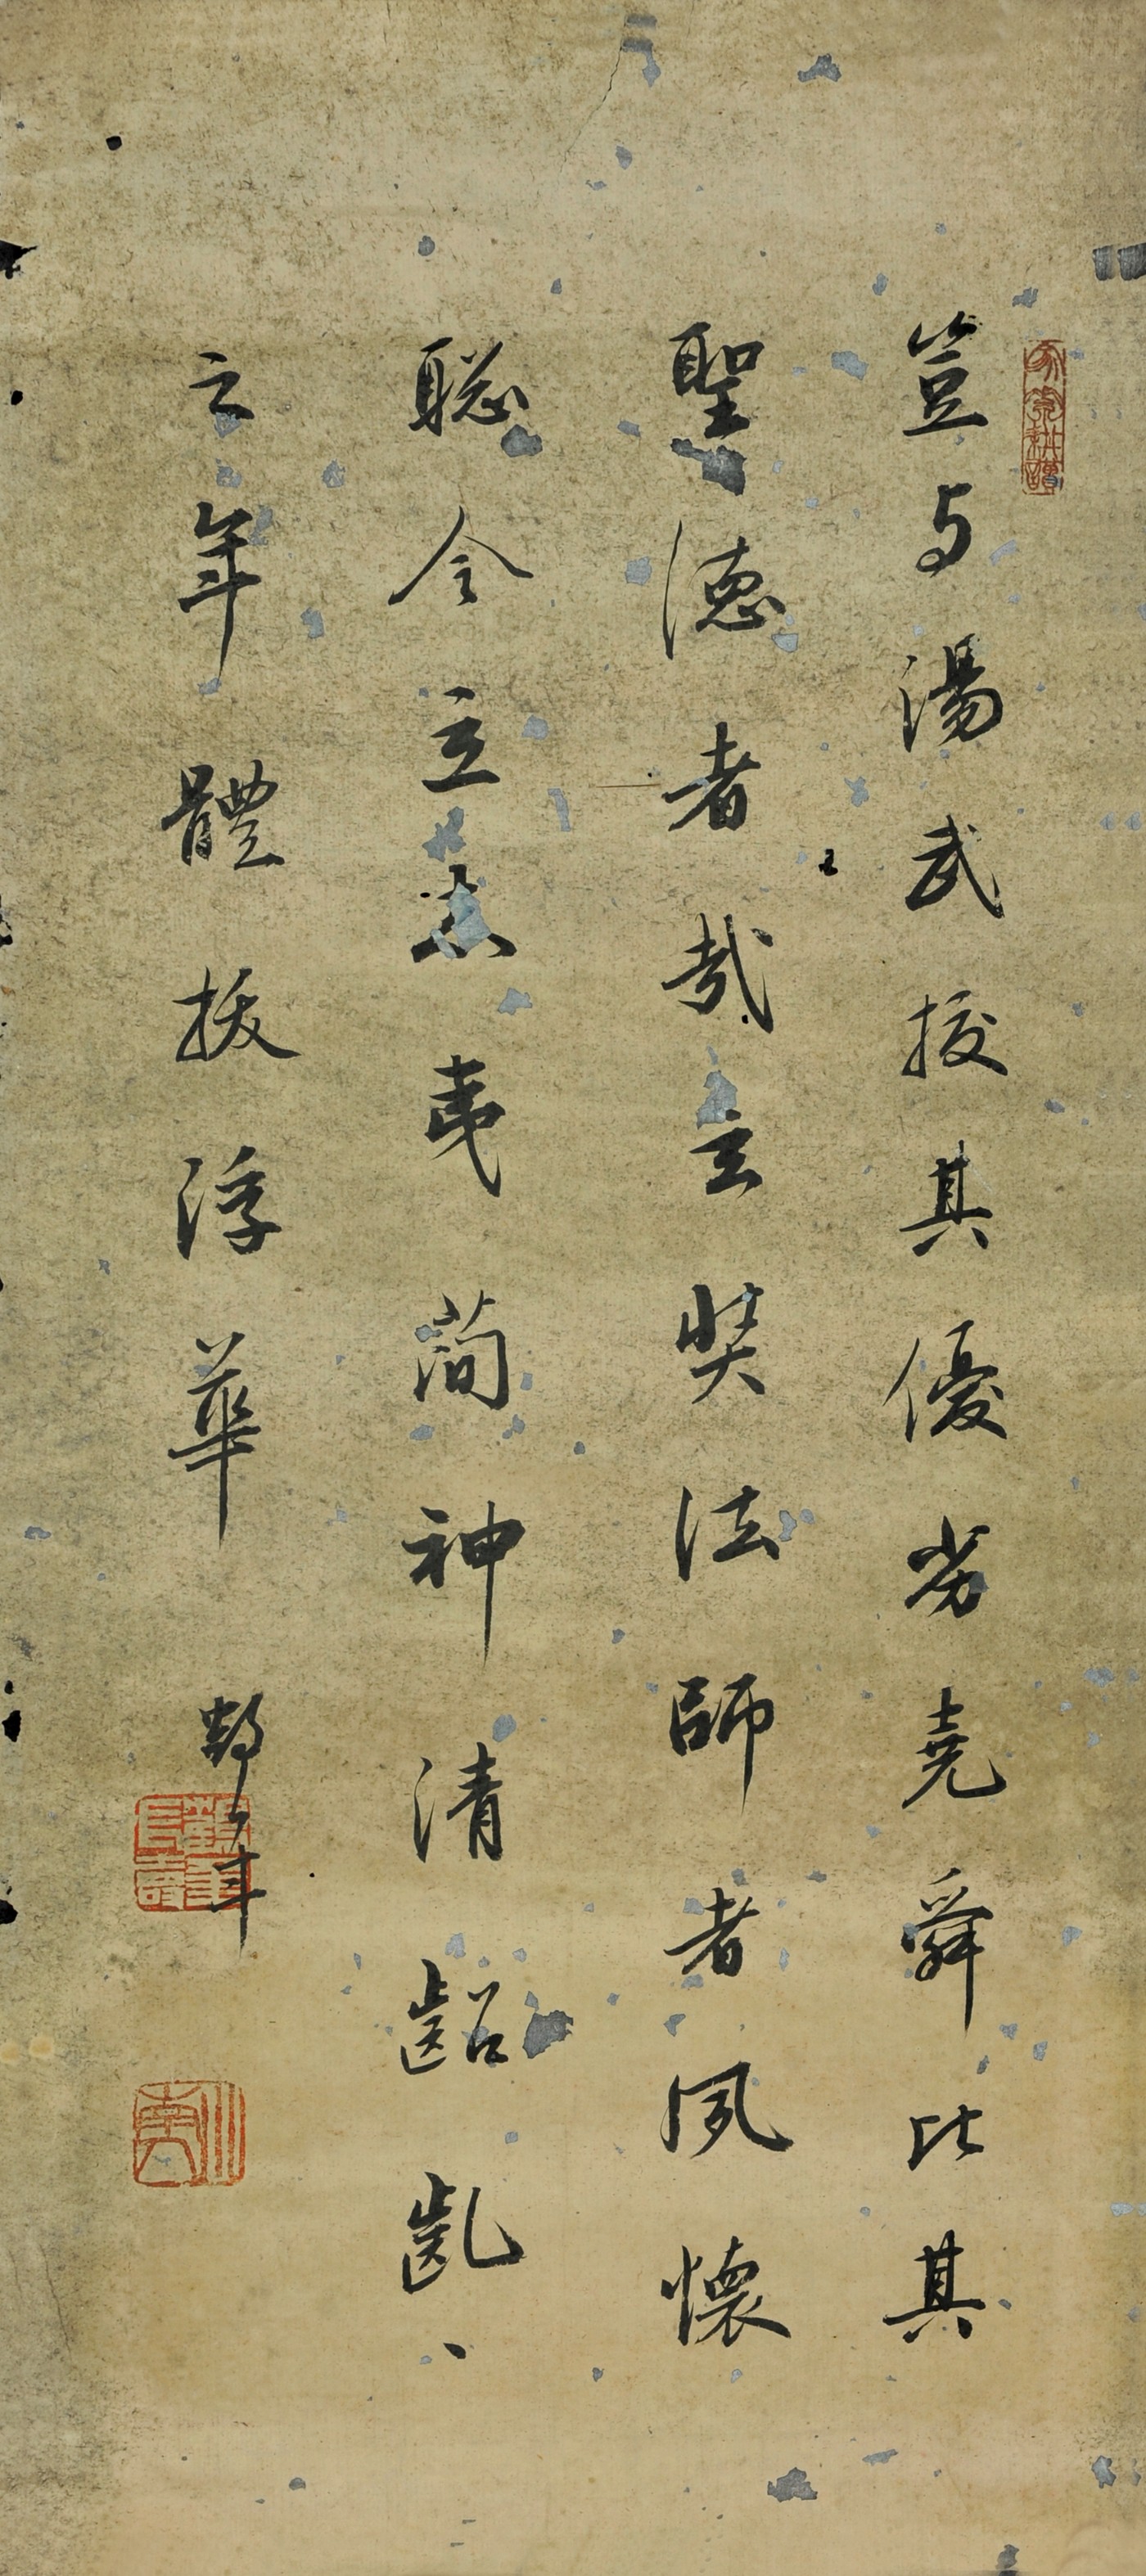 豈与湯武挍其優劣堯舜比其
聖德者哉玄奘法師者夙懷
聡令立志夷簡神清齠齓
之年體拔浮華
年